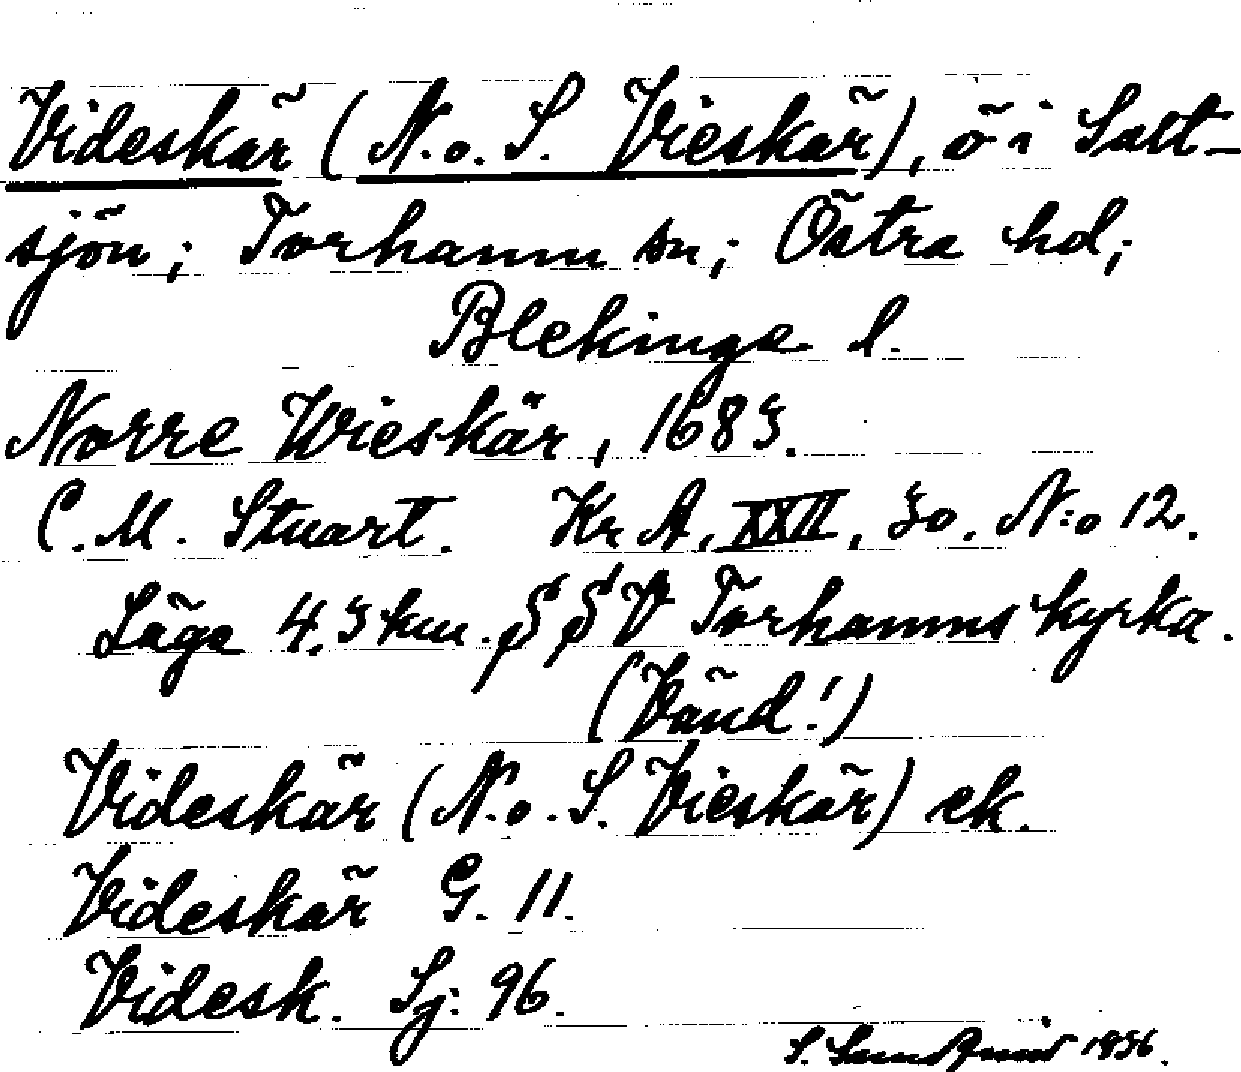 Videskär (N. o. S. Vieskär), ö i Salt-
sjön; Torhamn sn; Östra hd;
Blekinge l.
Norre Wieskär, 1683.
C. M. Stuart. Kr A, XXII, 30. N:o 12.
Läge 4.3 km. S S V Torhamns kyrka.
(Vänd!)
Videskär (N. o. S. Vieskär) ek.
Videskär G. 11.
Videsk. Sj: 96.
S. 1936.